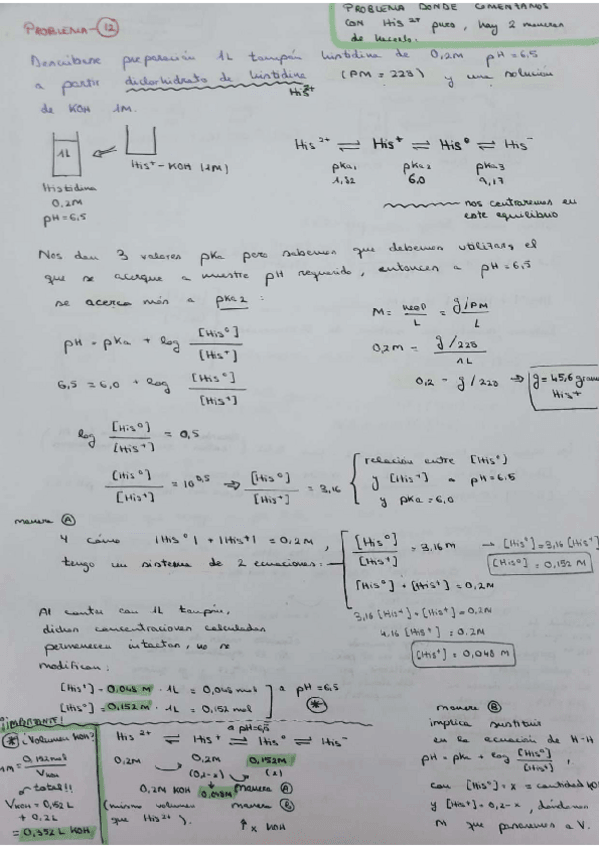 PROBLEMA DONDE COMENZAMOS
CON His²⁺ puro, hay 2 maneras
de hacerlo.
PROBLEMA-12
Describir preparación 1L tampón histidina de 0,2M pH=6,5
a partir diclorhidrato de histidina (PM = 228) y una solución
His²⁺
de KOH 1M.
1L
His⁺-KOH (1M)
Histidina
0,2M
pH=6,5
His²⁺ ⇌ His⁺ ⇌ His⁰ ⇌ His⁻
pKa₁ pKa₂ pKa₃
1,82 6,0 9,17
nos centraremos en
este equilibrio
Nos dan 3 valores pKa pero sabemos que debemos utilizar el
que se acerque a nuestro pH requerido, entonces a pH=6,5
se acerca más a pKa2:
pH = pKa + log [His⁰]/[His⁺]
M = neop/L = g/PM/L
6,5 = 6,0 + log [His⁰]/[His⁺]
0,2M = g/228/1L
0,2 = g/228 → g=45,6 gram
His⁺
log [His⁰]/[His⁺] = 0,5
[His⁰]/[His⁺] = 10^0,5 ⇒ [His⁰]/[His⁺] = 3,16
relación entre [His⁰]
y [His⁺] a pH=6.5
y pKa = 6,0
manera A
Y como [His⁰] + [His⁺] = 0,2M,
tengo un sistema de 2 ecuaciones:
[His⁰]/[His⁺] = 3.16 M → [His⁰]=3,16 [His⁺]
[His⁰] = 0,152 M
[His⁰] + [His⁺] = 0,2M
3,16 [His⁺] + [His⁺] = 0,2M
4,16 [His⁺] = 0.2M
[His⁺] = 0,048 M
Al contar con 1L tampón,
dichas concentraciones calculadas
permanecen intactas, no se
modifican:
[His⁺] = 0,048 M · 1L = 0,048 mol
[His⁰] = 0,152 M · 1L = 0,152 mol
a pH=6,5
*
¡¡IMPORTANTE!
* ¿Volumen KOH?
1M = 0,152 mol/V KOH
total!!
V KOH = 0,152 L
+ 0,2L
= 0,352 L KOH
a pH=6,5
His²⁺ ⇌ His⁺ ⇌ His⁰ ⇌ His⁻
0,2M 0,2M 0,152M
(0,2-x) (x)
0,2M KOH 0,048M manera A
(mismo volumen manera B
que His²⁺).
↑ x KOH
manera B
implica sustituir
en la ecuación de H-H
pH = pKa + log [His⁰]/[His⁺],
con [His⁰] = x = cantidad KO
y [His⁺] = 0,2-x, dándonos
M que pasaremos a V.